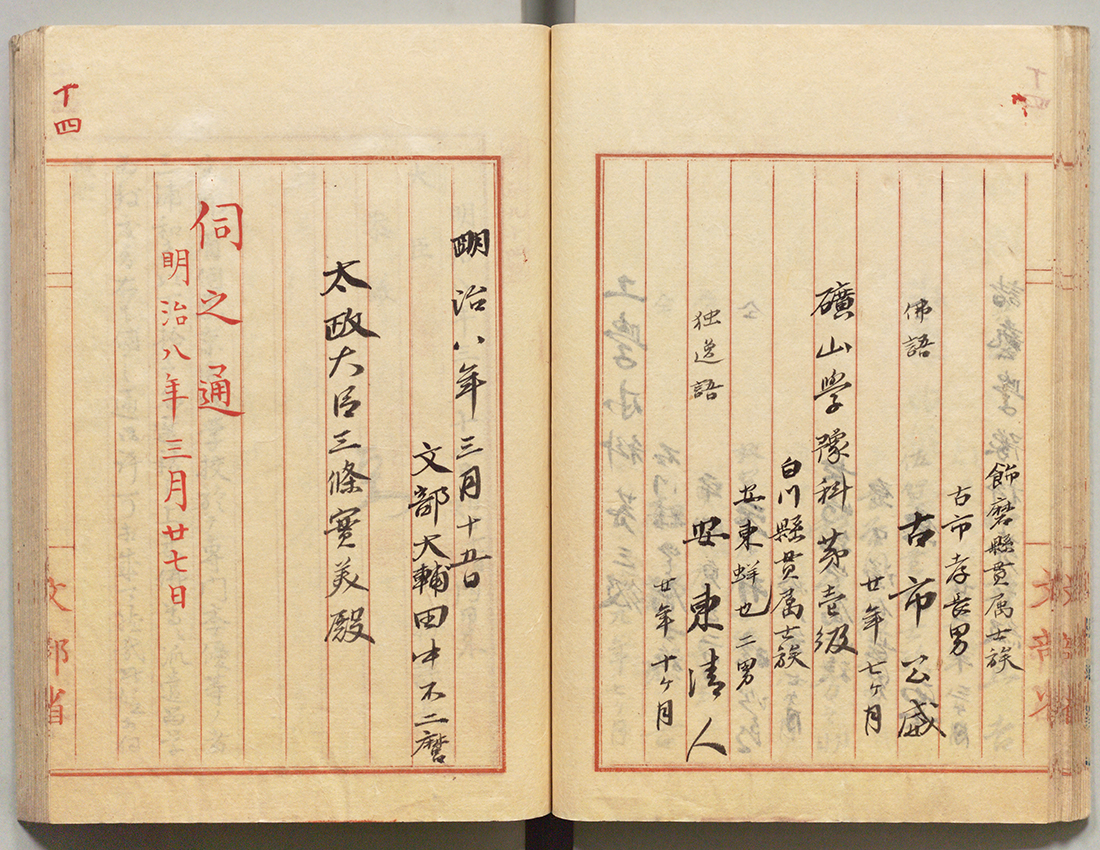 飾磨縣貫属士族
古市孝長男
佛語
古市公威
廿年七ヶ月
礦山學豫科第壱級
白川縣貫属士族
安東蝉也二男
独逸語
安東清人
廿年十ヶ月
十四
明治八年三月十五日
文部大輔田中不二麿
太政大臣三條實美殿
伺之通
明治八年三月廿七日
文部省